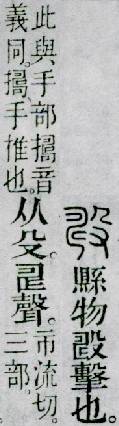 縣物㲈擊也。
此與手部㨶音
義同。㨶、手推也。
从殳。𠃬聲。
市流切。
三部。